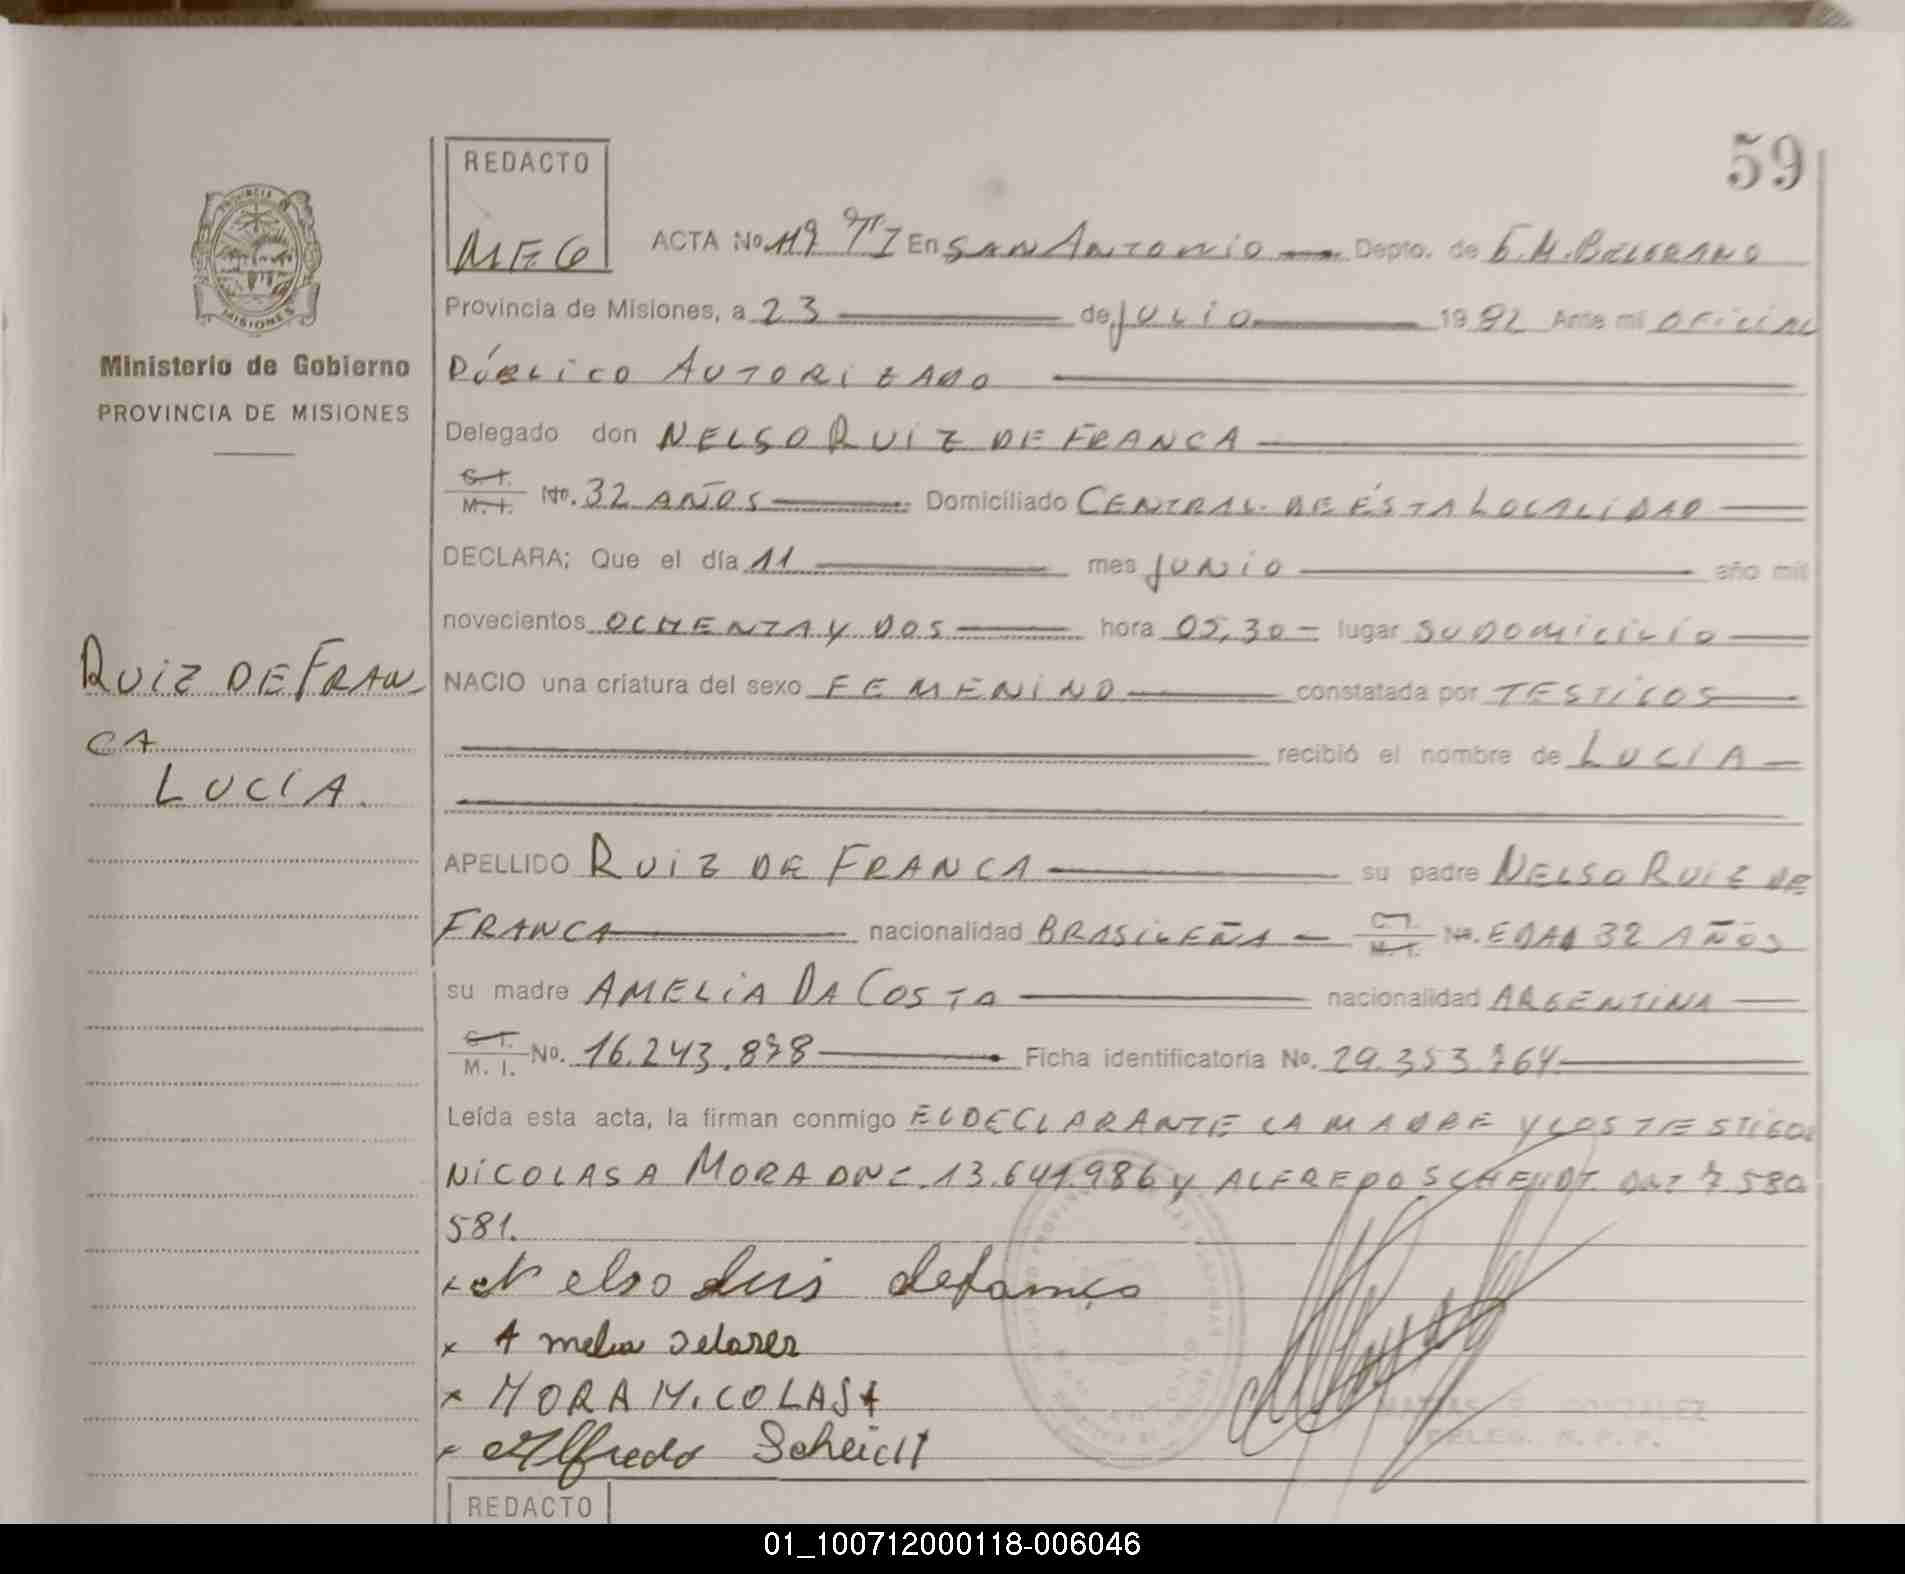 59
REDACTO
MEG
ACTA No 119 TI En SAN ANTONIO Depto. de G.M.BELGRANO
Provincia de Misiones, a 23 de JULIO 1982 Ante mí OFICIAL
PÚBLICO AUTORIZADO
Delegado don NELSO RUIZ DE FRANCA
C.I. M.I. No. 32 AÑOS Domiciliado CENTRAL DE ÉSTA LOCALIDAD
DECLARA; Que el día 11 mes JUNIO año mil
novecientos OCHENTA Y DOS hora 05,30 lugar SU DOMICILIO
NACIO una criatura del sexo FEMENINO constatada por TESTIGOS
recibió el nombre de LUCIA
APELLIDO RUIZ DE FRANCA su padre NELSO RUIZ DE
FRANCA nacionalidad BRASILEÑA C.I. M.I. No. EDAD 32 AÑOS
su madre AMELIA DA COSTA nacionalidad ARGENTINA
C.I. M.I. No. 16.243.878 Ficha identificatoria No. 29.353.764
Leída esta acta, la firman conmigo EL DECLARANTE LA MADRE Y LOS TESTIGOS
NICOLASA MORA DNI. 13.641.986 y ALFREDO SCHEIDT DNI 7.580
581.
x Nelso Luis defranço
x Amelia
x MORA NICOLASA
x Alfredo Scheidt
DELEG. R. P. P.
REDACTO
PROVINCIA
MISIONES
Ministerio de Gobierno
PROVINCIA DE MISIONES
RUIZ DE FRAN-
CA
LUCIA.
01_100712000118-006046